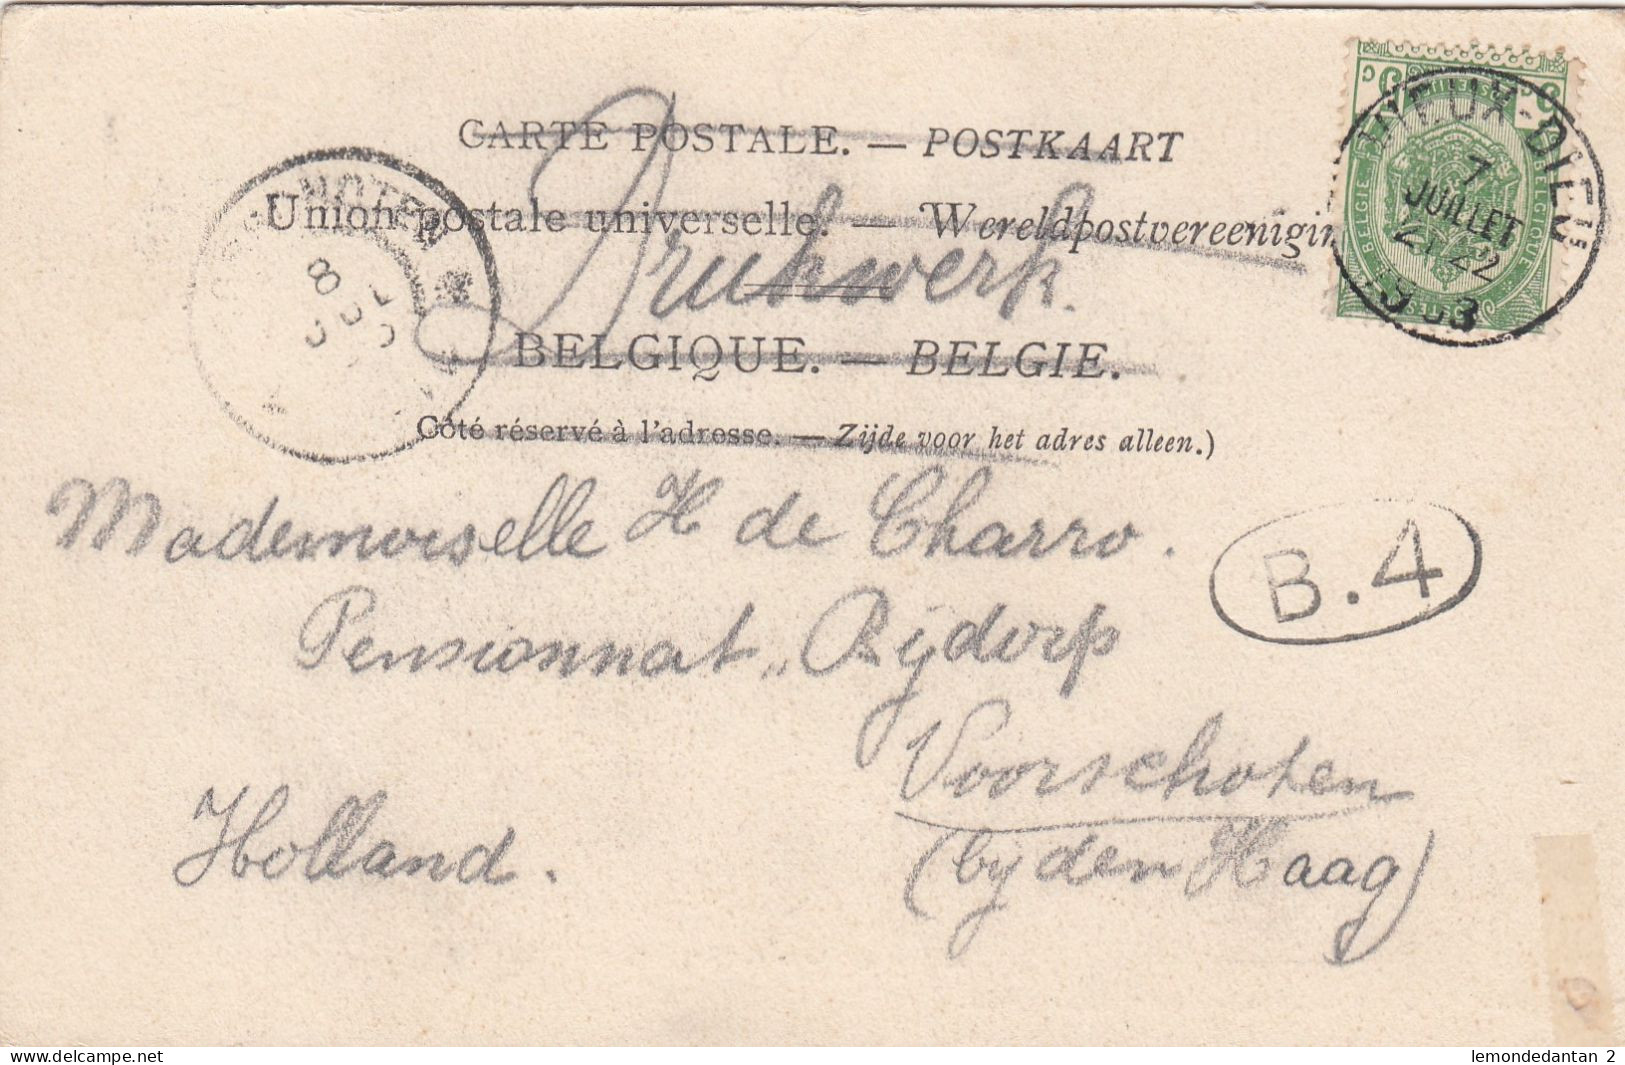 CARTE POSTALE. — POSTKAART
Union postale universelle. — Wereldpostvereeniging
Drukwerk.
BELGIQUE. — BELGIE.
Côté réservé à l'adresse. — Zijde voor het adres alleen.)
VIEUX-DIEU
7
JUILLET
21-22
1903
8
JUL
Mademoiselle H de Charro.
B.4
Pensionnat „Rijdorp
Voorschoten
Holland.
(bij den Haag)
lemondedantan 2